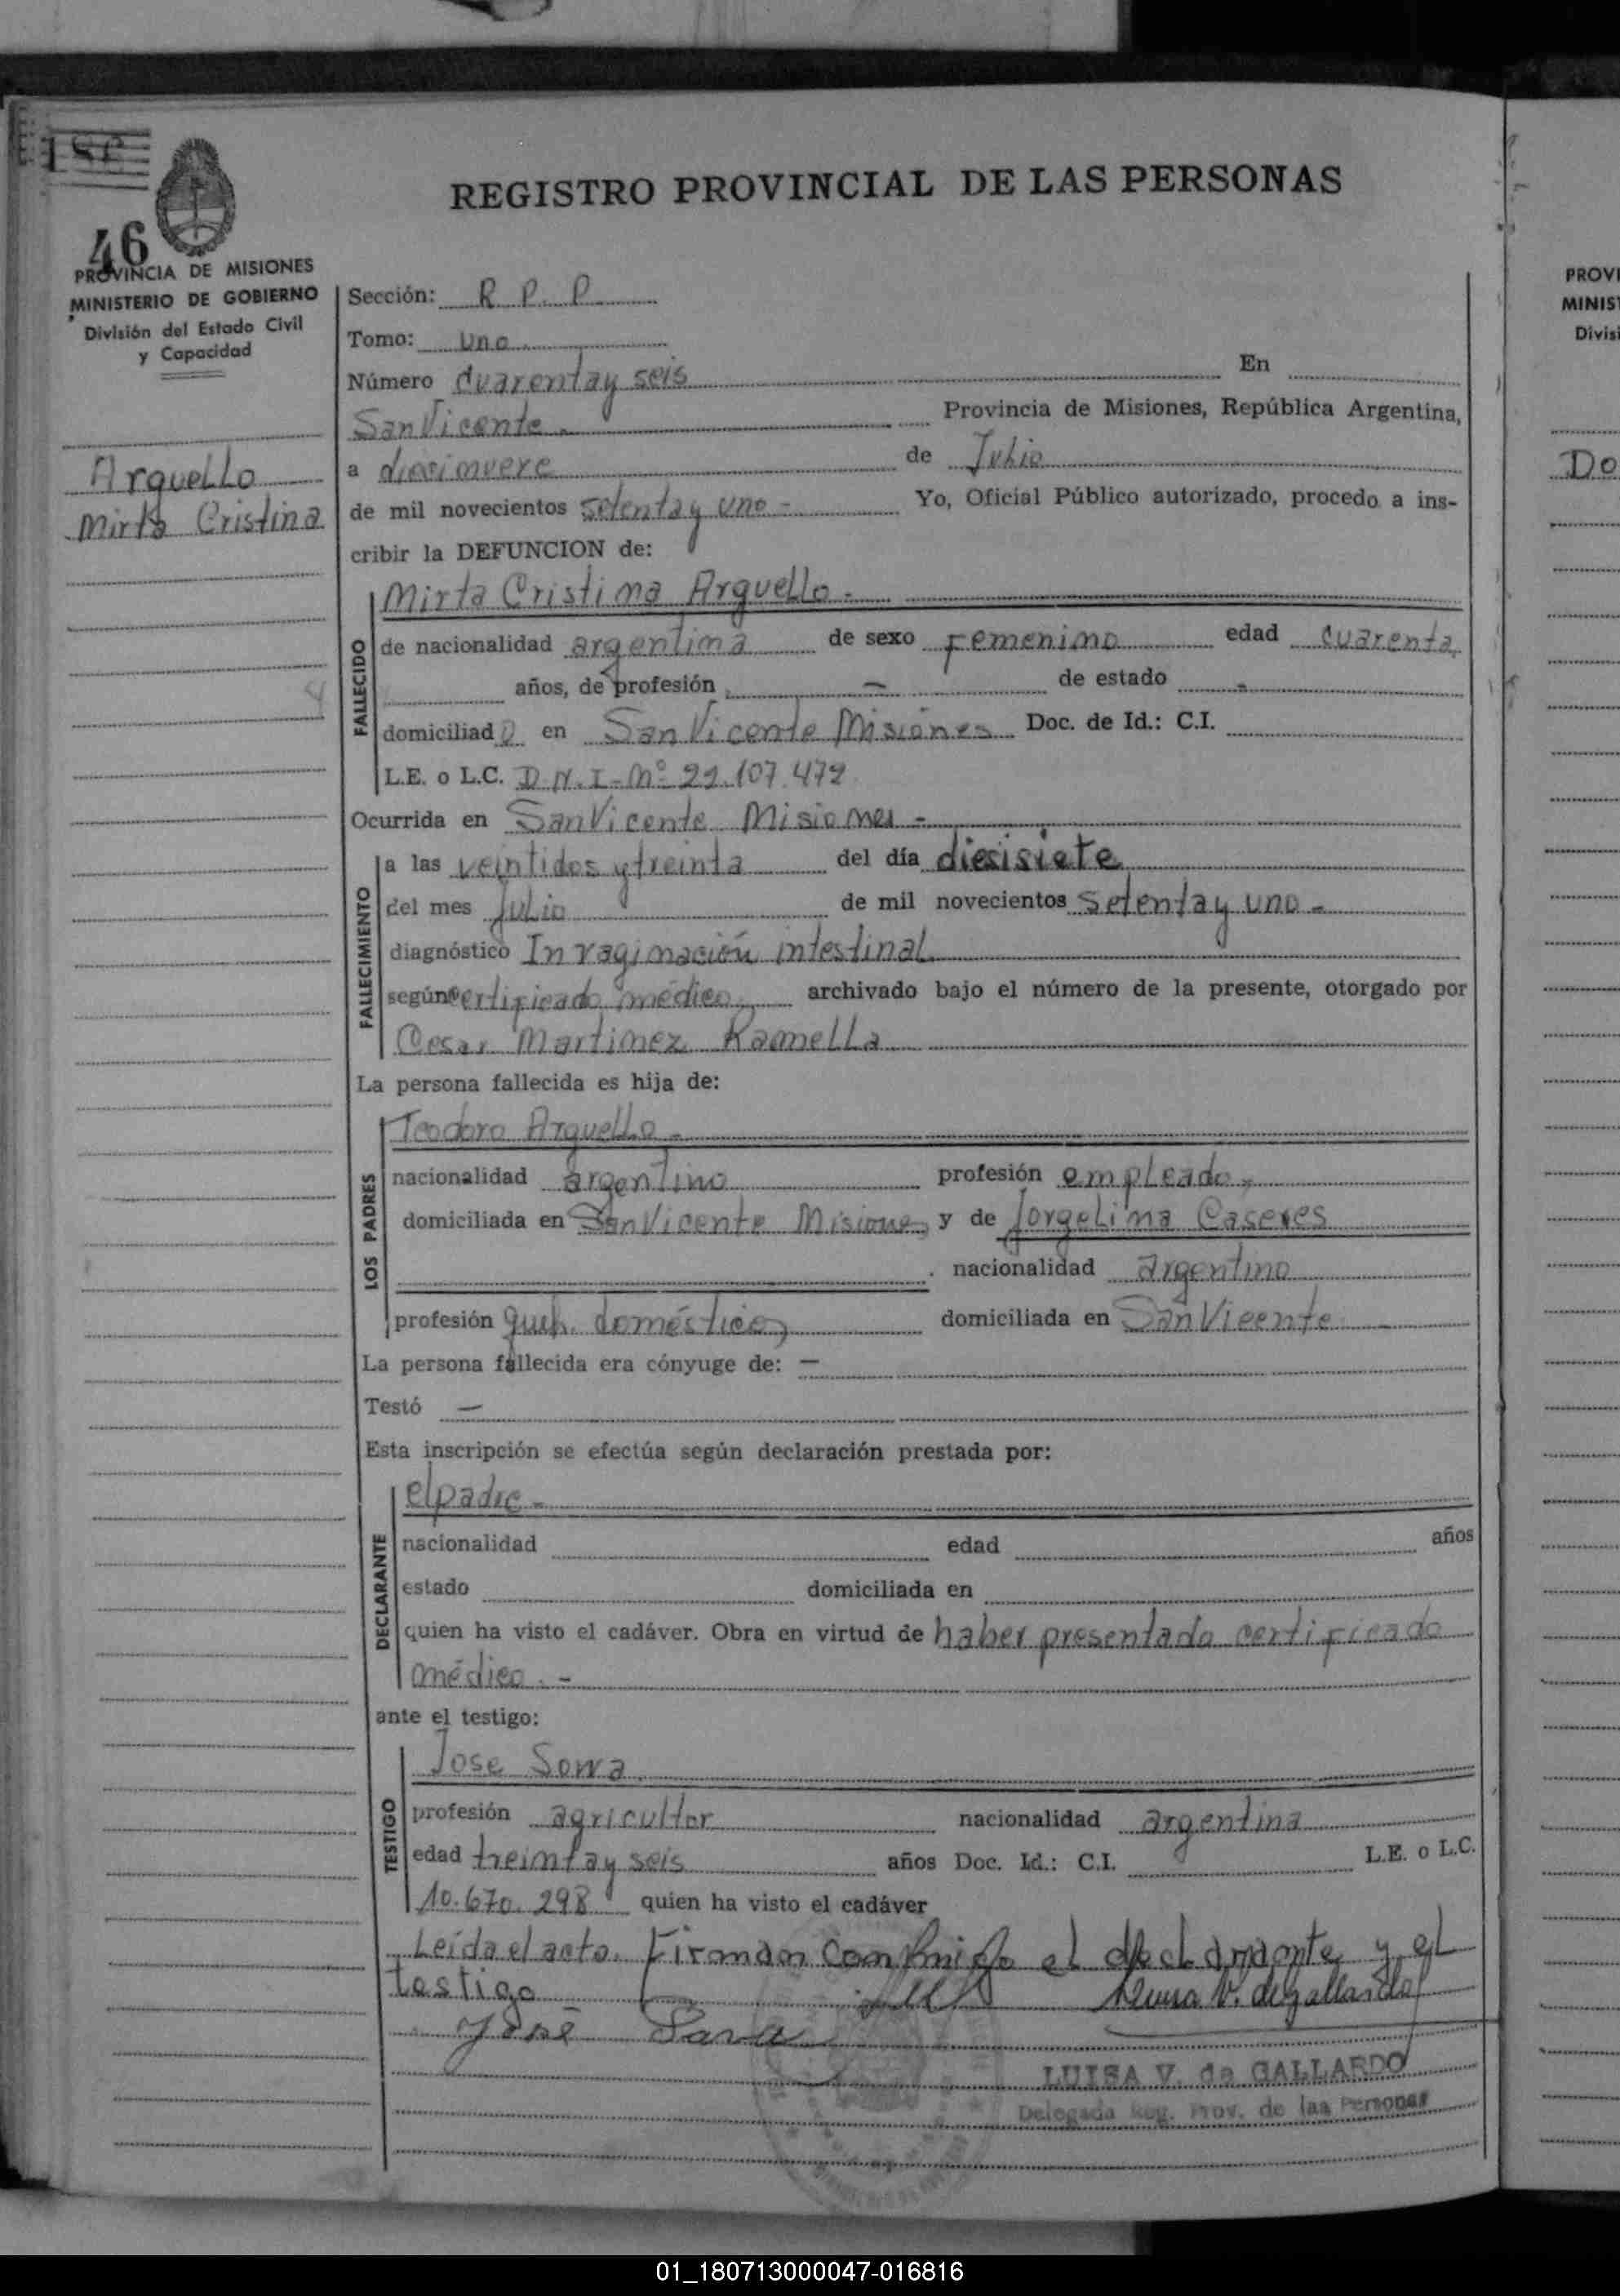 186
REGISTRO PROVINCIAL DE LAS PERSONAS
46
PROVINCIA DE MISIONES
MINISTERIO DE GOBIERNO
División del Estado Civil
y Capacidad
Arguello
Mirta Cristina
Sección: R P. P
Tomo: Uno
Número Cuarenta y seis En
San Vicente - Provincia de Misiones, República Argentina,
a diecinueve de Julio
de mil novecientos setenta y uno - Yo, Oficial Público autorizado, procedo a ins-
cribir la DEFUNCION de:
FALLECIDO
Mirta Cristina Arguello -
de nacionalidad argentina de sexo femenino edad cuarenta
años, de profesión — de estado -
domiciliad o en San Vicente Misiones Doc. de Id.: C.I.
L.E. o L.C. D.N.I - Nº 22.107.472
Ocurrida en San Vicente Misiones -
FALLECIMIENTO
a las veintidos y treinta del día diesisiete
del mes Julio de mil novecientos setenta y uno -
diagnóstico Invaginación intestinal
según certificado médico archivado bajo el número de la presente, otorgado por
Cesar Martinez Ramella
La persona fallecida es hija de:
LOS PADRES
Teodoro Arguello -
nacionalidad argentino profesión empleado
domiciliada en San Vicente Misiones y de Jorgelina Caseres
nacionalidad argentino
profesión queh. domésticos domiciliada en San Vicente
La persona fallecida era cónyuge de: —
Testó —
Esta inscripción se efectúa según declaración prestada por:
DECLARANTE
el padre -
nacionalidad edad años
estado domiciliada en
quien ha visto el cadáver. Obra en virtud de haber presentado certificado
médico. -
ante el testigo:
TESTIGO
Jose Sowa
profesión agricultor nacionalidad argentina
edad treinta y seis años Doc. Id.: C.I. L.E. o L.C.
10.670.298 quien ha visto el cadáver
Leída el acto. Firman conmigo el declarante y el
testigo Luisa V. de Gallardo
José
LUISA V. de GALLARDO
Delegada Reg. Prov. de las Personas
PROVI
MINIST
Divisi
Do
01_180713000047-016816